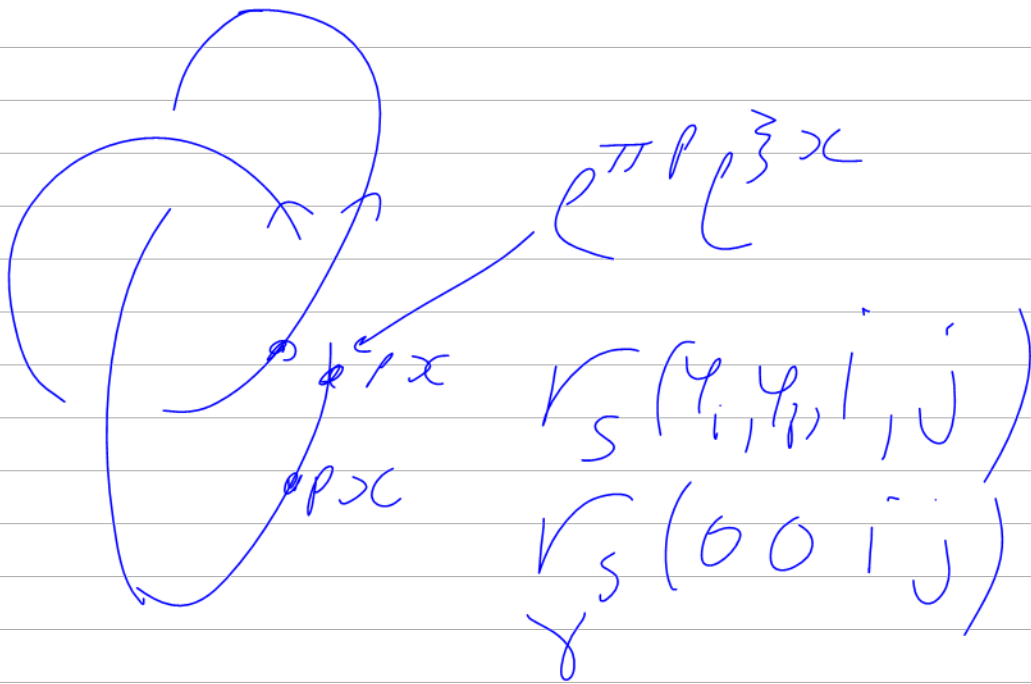 e^{πp} e^{ξx}
px
px
r_s(φ_i, φ_j, i, j)
r_s(0 0 i j)
γ